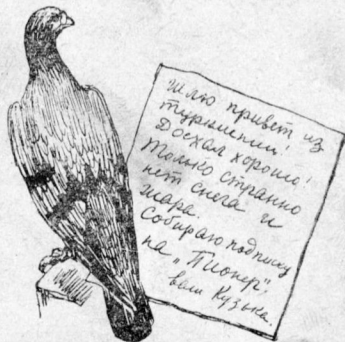 Шлю привет из
туркмении!
Доехал хорошо!
Только странно
нет снега и
жара.
Собираю подписку
на „Пионер".
ваш Кузька.